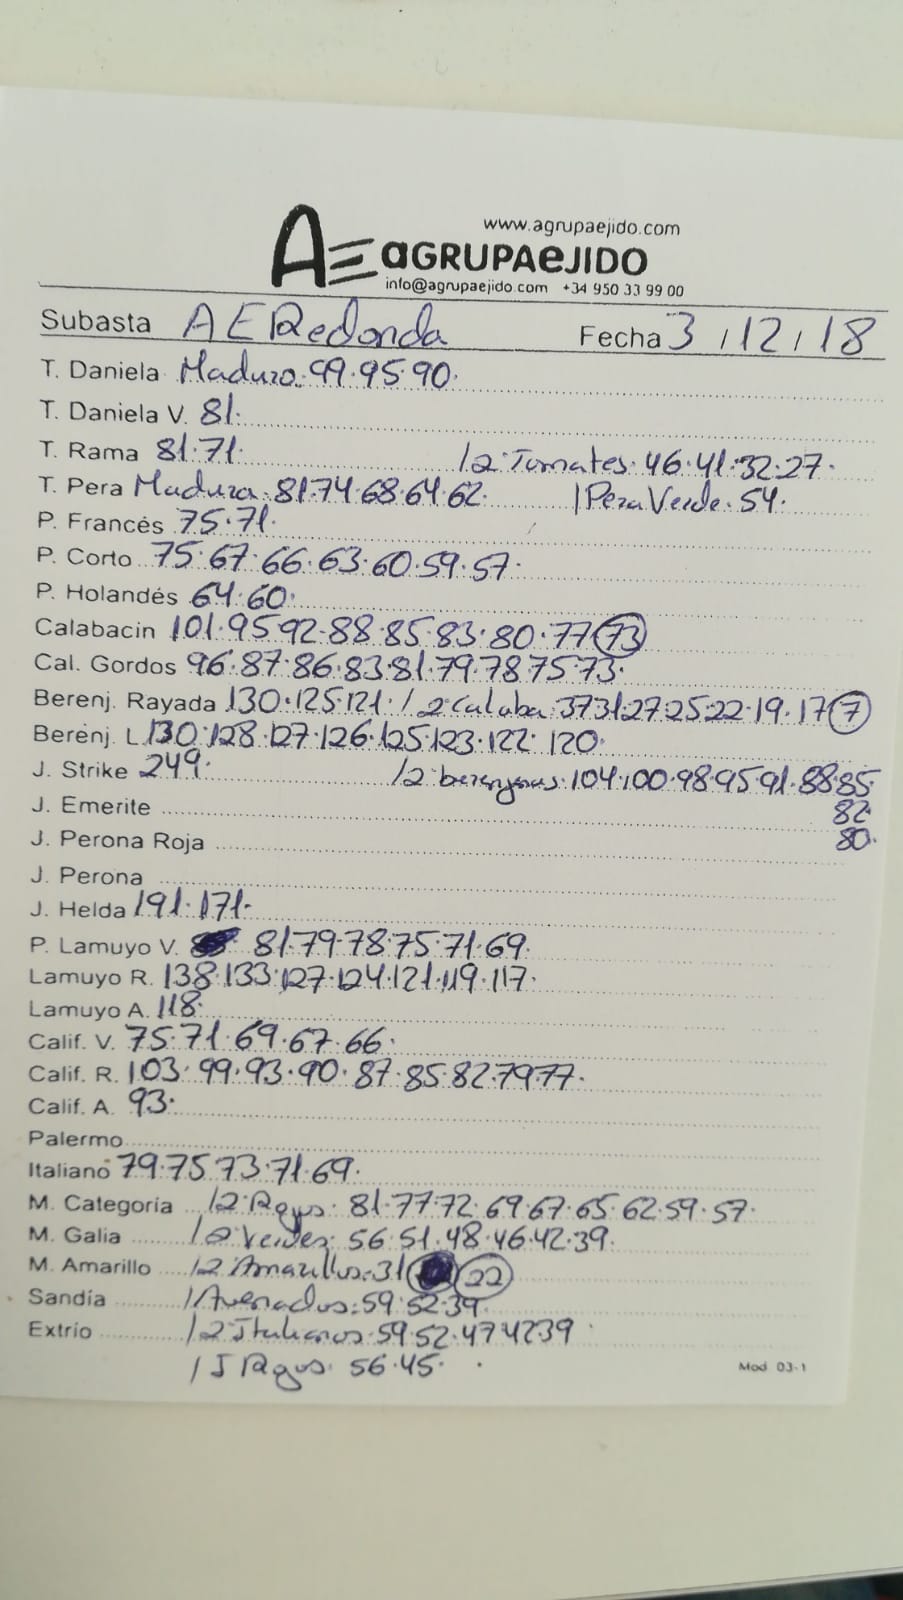 www.agrupaejido.com
AE aGRUPAeJIDO
info@agrupaejido.com +34 950 33 99 00
Subasta AERedonda Fecha 3/12/18
T. Daniela Maduro. 99.95.90.
T. Daniela V. 81.
T. Rama 81.71. /2ª Tomates. 46.41.32.27.
T. Pera Madura. 81.74.68.64.62. /Pera Verde. 54.
P. Francés 75.71.
P. Corto 75.67.66.63.60.59.57.
P. Holandés 64.60.
Calabacin 101.95.92.88.85.83.80.77.73
Cal. Gordos 96.87.86.83.81.79.78.75.73.
Berenj. Rayada 130.125.121. /2ª Calaba. 37.31.27.25.22.19.17.7
Berenj. L. 130.128.127.126.125.123.122. 120.
J. Strike 249. /2 berenjenas. 104.100.98.95.91.88.85.
J. Emerite 82.
J. Perona Roja 80.
J. Perona
J. Helda 191.171.
P. Lamuyo V. 81.79.78.75.71.69.
Lamuyo R. 138.133.127.124.121.119.117.
Lamuyo A. 118.
Calif. V. 75.71.69.67.66.
Calif. R. 103.99.93.90.87.85.82.79.77.
Calif. A. 93.
Palermo
Italiano 79.75.73.71.69.
M. Categoría /2ª Rojos. 81.77.72.69.67.65.62.59.57.
M. Galia /2ª Verdes. 56.51.48.46.42.39.
M. Amarillo /2 Amarillos. 31 22
Sandía 59.52.39.
Extrio /2 Italianos. 59.52.47.42.39
/J Rojos. 56.45.
Mod 03-1